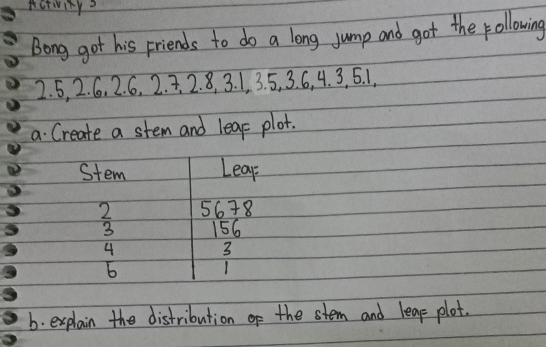 Activity 3
Bong got his friends to do a long jump and got the following
2.5, 2.6, 2.6, 2.7, 2.8, 3.1, 3.5, 3.6, 4.3, 5.1,
a. Create a stem and leaf plot.
Stem Leaf
2 5678
3 156
4 3
5 1
b. explain the distribution of the stem and leaf plot.